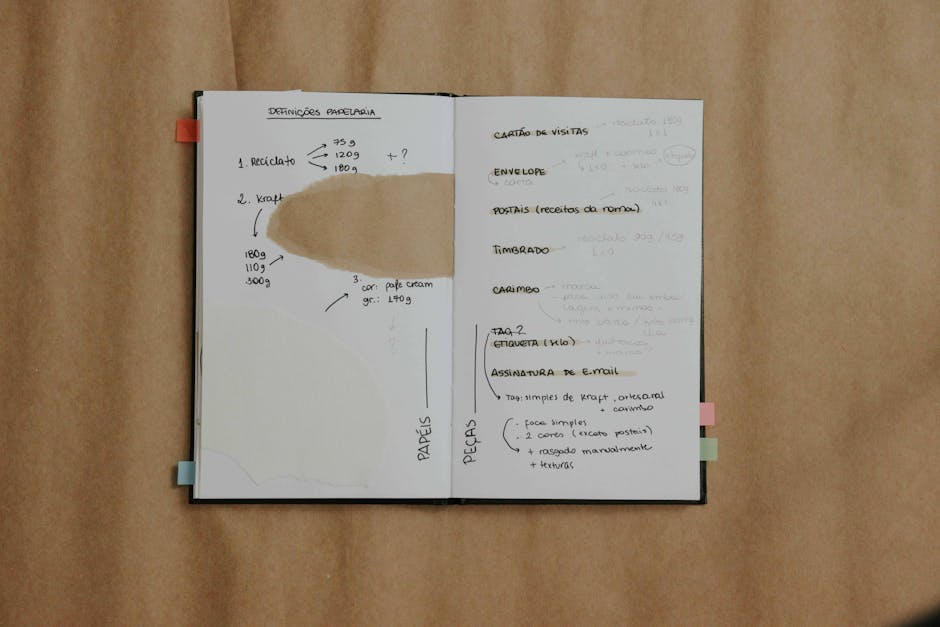 DEFINIÇÕES PAPELARIA
1. Reciclato
75g
120g
180g
+ ?
2. Kraft
180g
110g
300g
3.
cor: pafe cream
gr.: 170g
?
PAPÉIS
PEÇAS
CARTÃO DE VISITAS
reciclato 180g
ENVELOPE
kraft + carimbo
carta
POSTAIS (receitas da noma)
reciclato 180g
4x1
TIMBRADO
reciclato 90g / 75g
1x0
CARIMBO
marca
TAG?
ETIQUETA (selo)
ASSINATURA DE E.mail
TAG: simples de kraft, artesanal
+ carimbo
- faca simples
- 2 cores (exceto postais)
+ rasgado manualmente
+ texturas